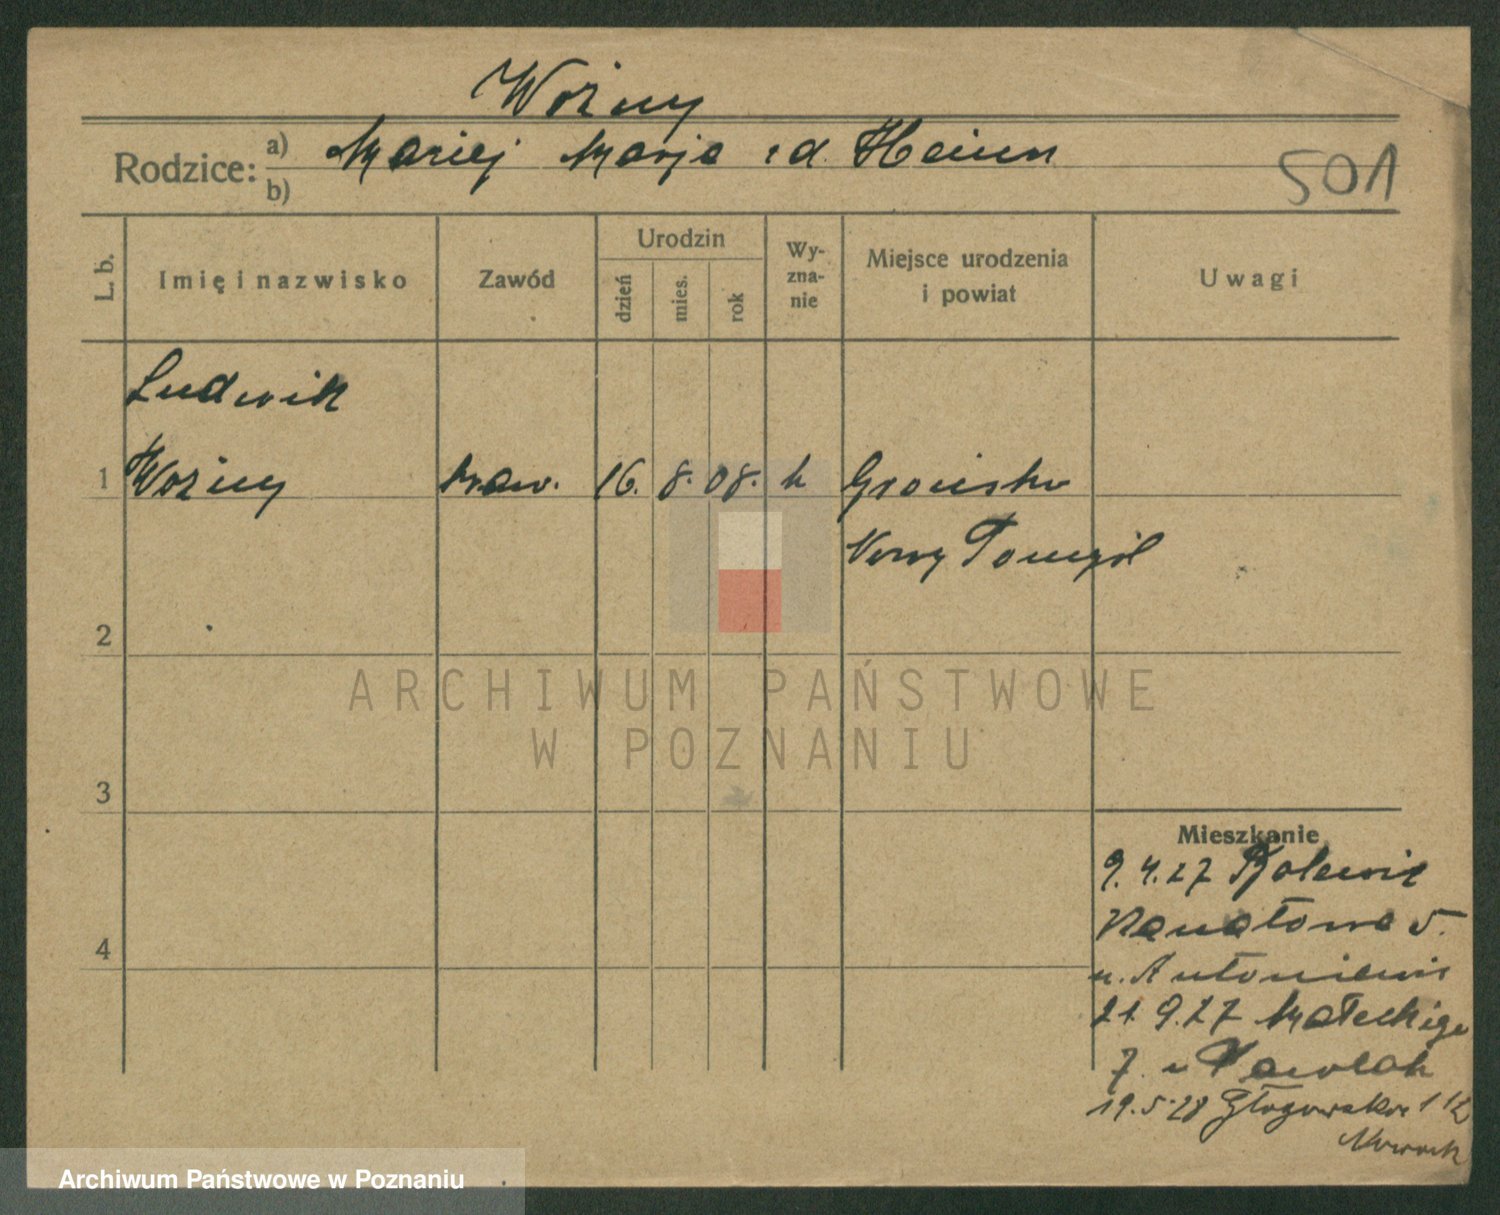 Woźny
Rodzice: a) Maciej Marja z d. Heinen
b)
501
L. b.
Imię i nazwisko
Zawód
Urodzin
dzień
mies.
rok
Wy-
zna-
nie
Miejsce urodzenia
i powiat
Uwagi
Ludwik
1 Woźny kraw. 16. 8. 08. k Grodzisko
Nowy Tomyśl
2
3
4
ARCHIWUM PAŃSTWOWE
W POZNANIU
Mieszkanie
9.4.27
5.
u. Antoniewicz
21.9.27 Małeckiego
7. u Pawlak
19.5.28 Głogowska 112
Nowak
Archiwum Państwowe w Poznaniu